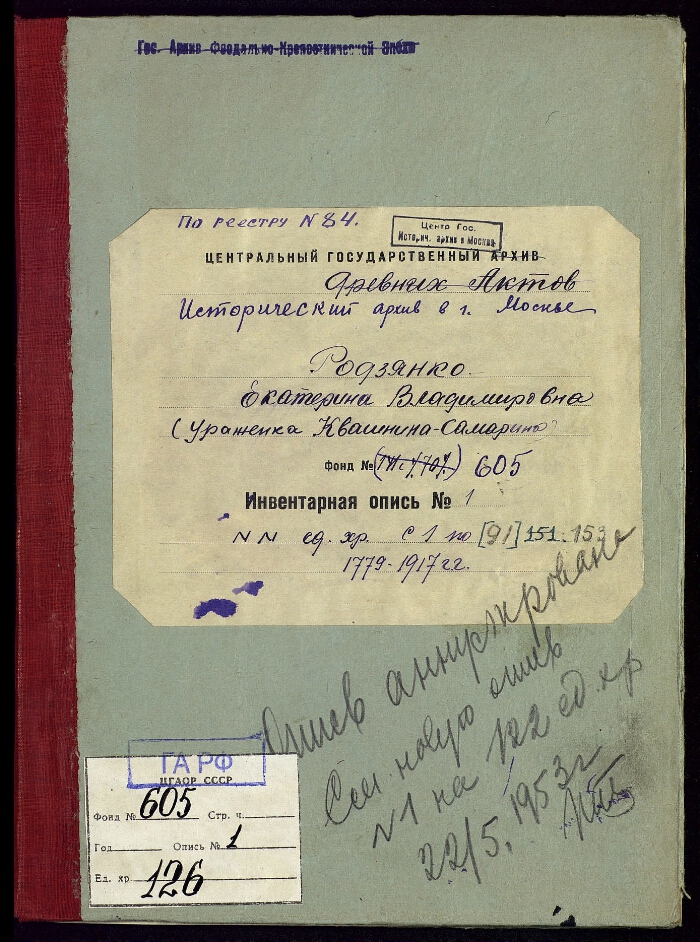 Гос. Архив Феодально-Крепостнической Эпохи
По реестру N 84.
Центр Гос.
Историч. архив в Москве
ЦЕНТРАЛЬНЫЙ ГОСУДАРСТВЕННЫЙ АРХИВ
Древних Актов
Исторический архив в г. Москве
Родзянко
Екатерина Владимировна
(Ураженка Квашнина-Самарина
Фонд № 605
Инвентарная опись № 1
NN ед. хр. с 1 по [91] 151. 153
1779-1917 г.г.
Опись аннулирована
См. новую опись
N 1 на 122 ед. хр
22/5. 1953 г
ГА РФ
ЦГАОР СССР
Фонд № 605 Стр. ч.
Год Опись № 1
Ед. хр. 126